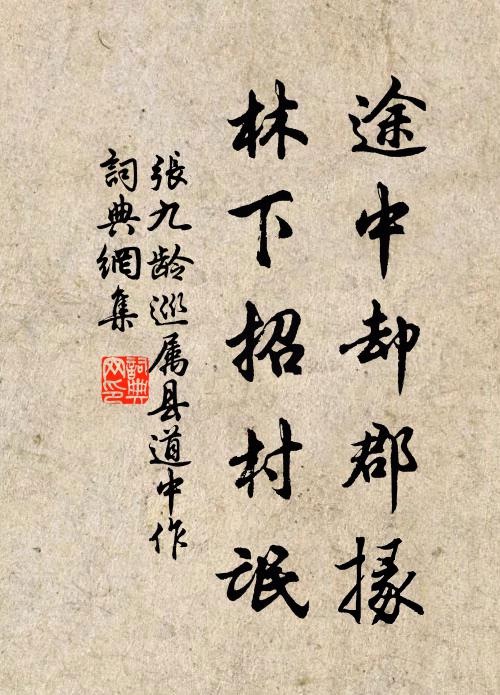 途中却郡掾
林下招村氓
張九龄巡属县道中作
詞典網集
詞典
网印